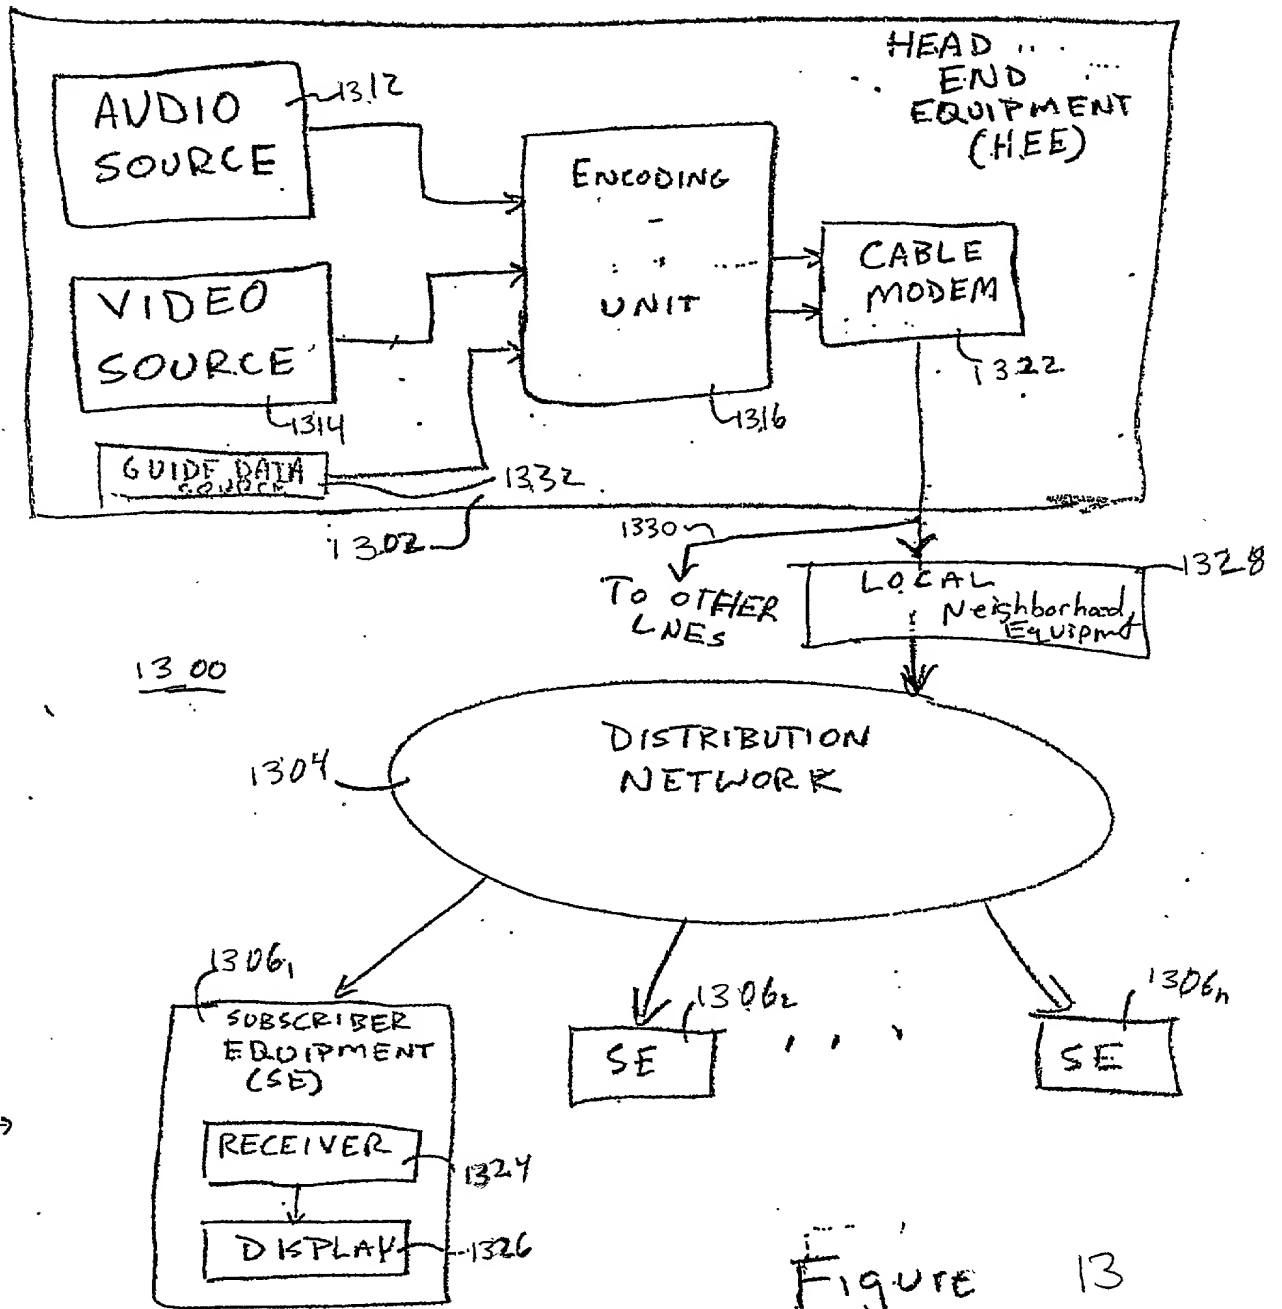 HEAD
END
EQUIPMENT
(HEE)
AUDIO
SOURCE
1312
ENCODING
UNIT
1316
CABLE
MODEM
1322
VIDEO
SOURCE
1314
GUIDE DATA
SOURCE
1332
1302
1330
TO OTHER
LNES
1328
LOCAL
Neighborhood
Equipmt
1300
1304
DISTRIBUTION
NETWORK
1306₁
SUBSCRIBER
EQUIPMENT
(SE)
RECEIVER
1324
DISPLAY
1326
1306₂
SE
1306ₙ
SE
FIGURE 13